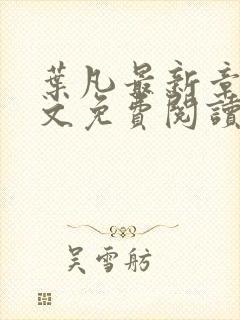 葉凡最新章
文免費閱讀
吳雪舫